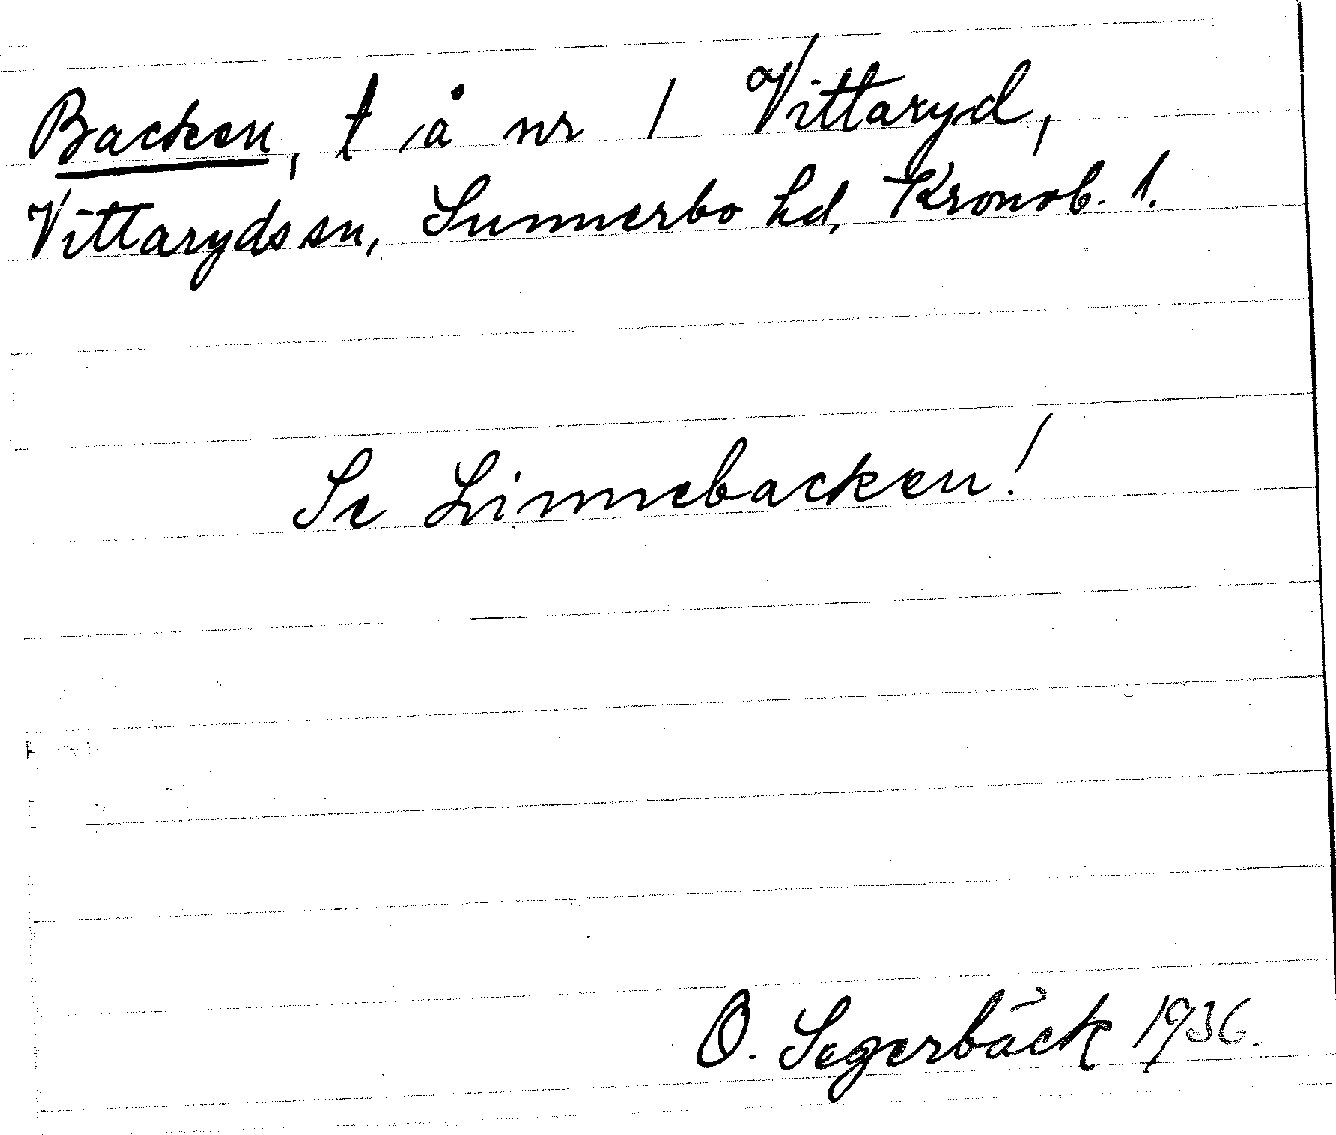 Backen, t å nr 1 Vittaryd,
Vittaryds sn, Sunnerbo hd, Kronob. l.
Se Linnebacken!
O. Segerbäck 1936.